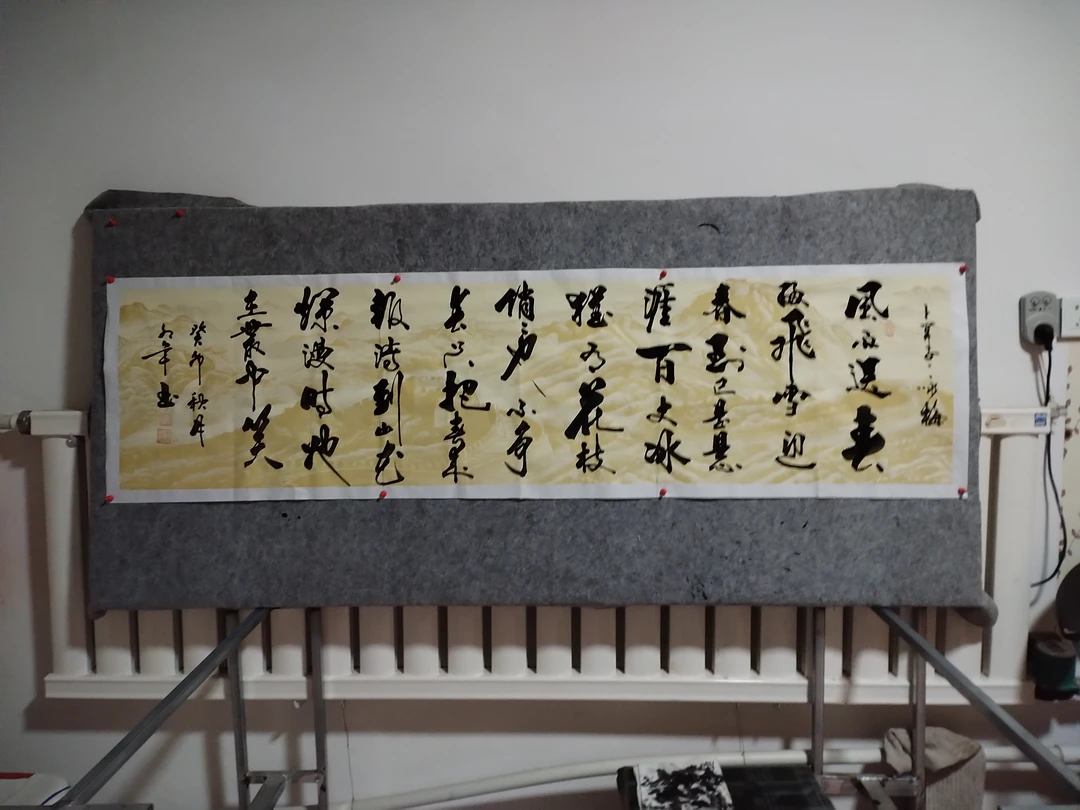 卜算子·咏梅
風雨送春
歸飛雪迎
春到已是悬
涯百丈冰
猶有花枝
俏也不争
春只把春来
報待到山花
爛漫时她
在叢中笑
癸卯秋月